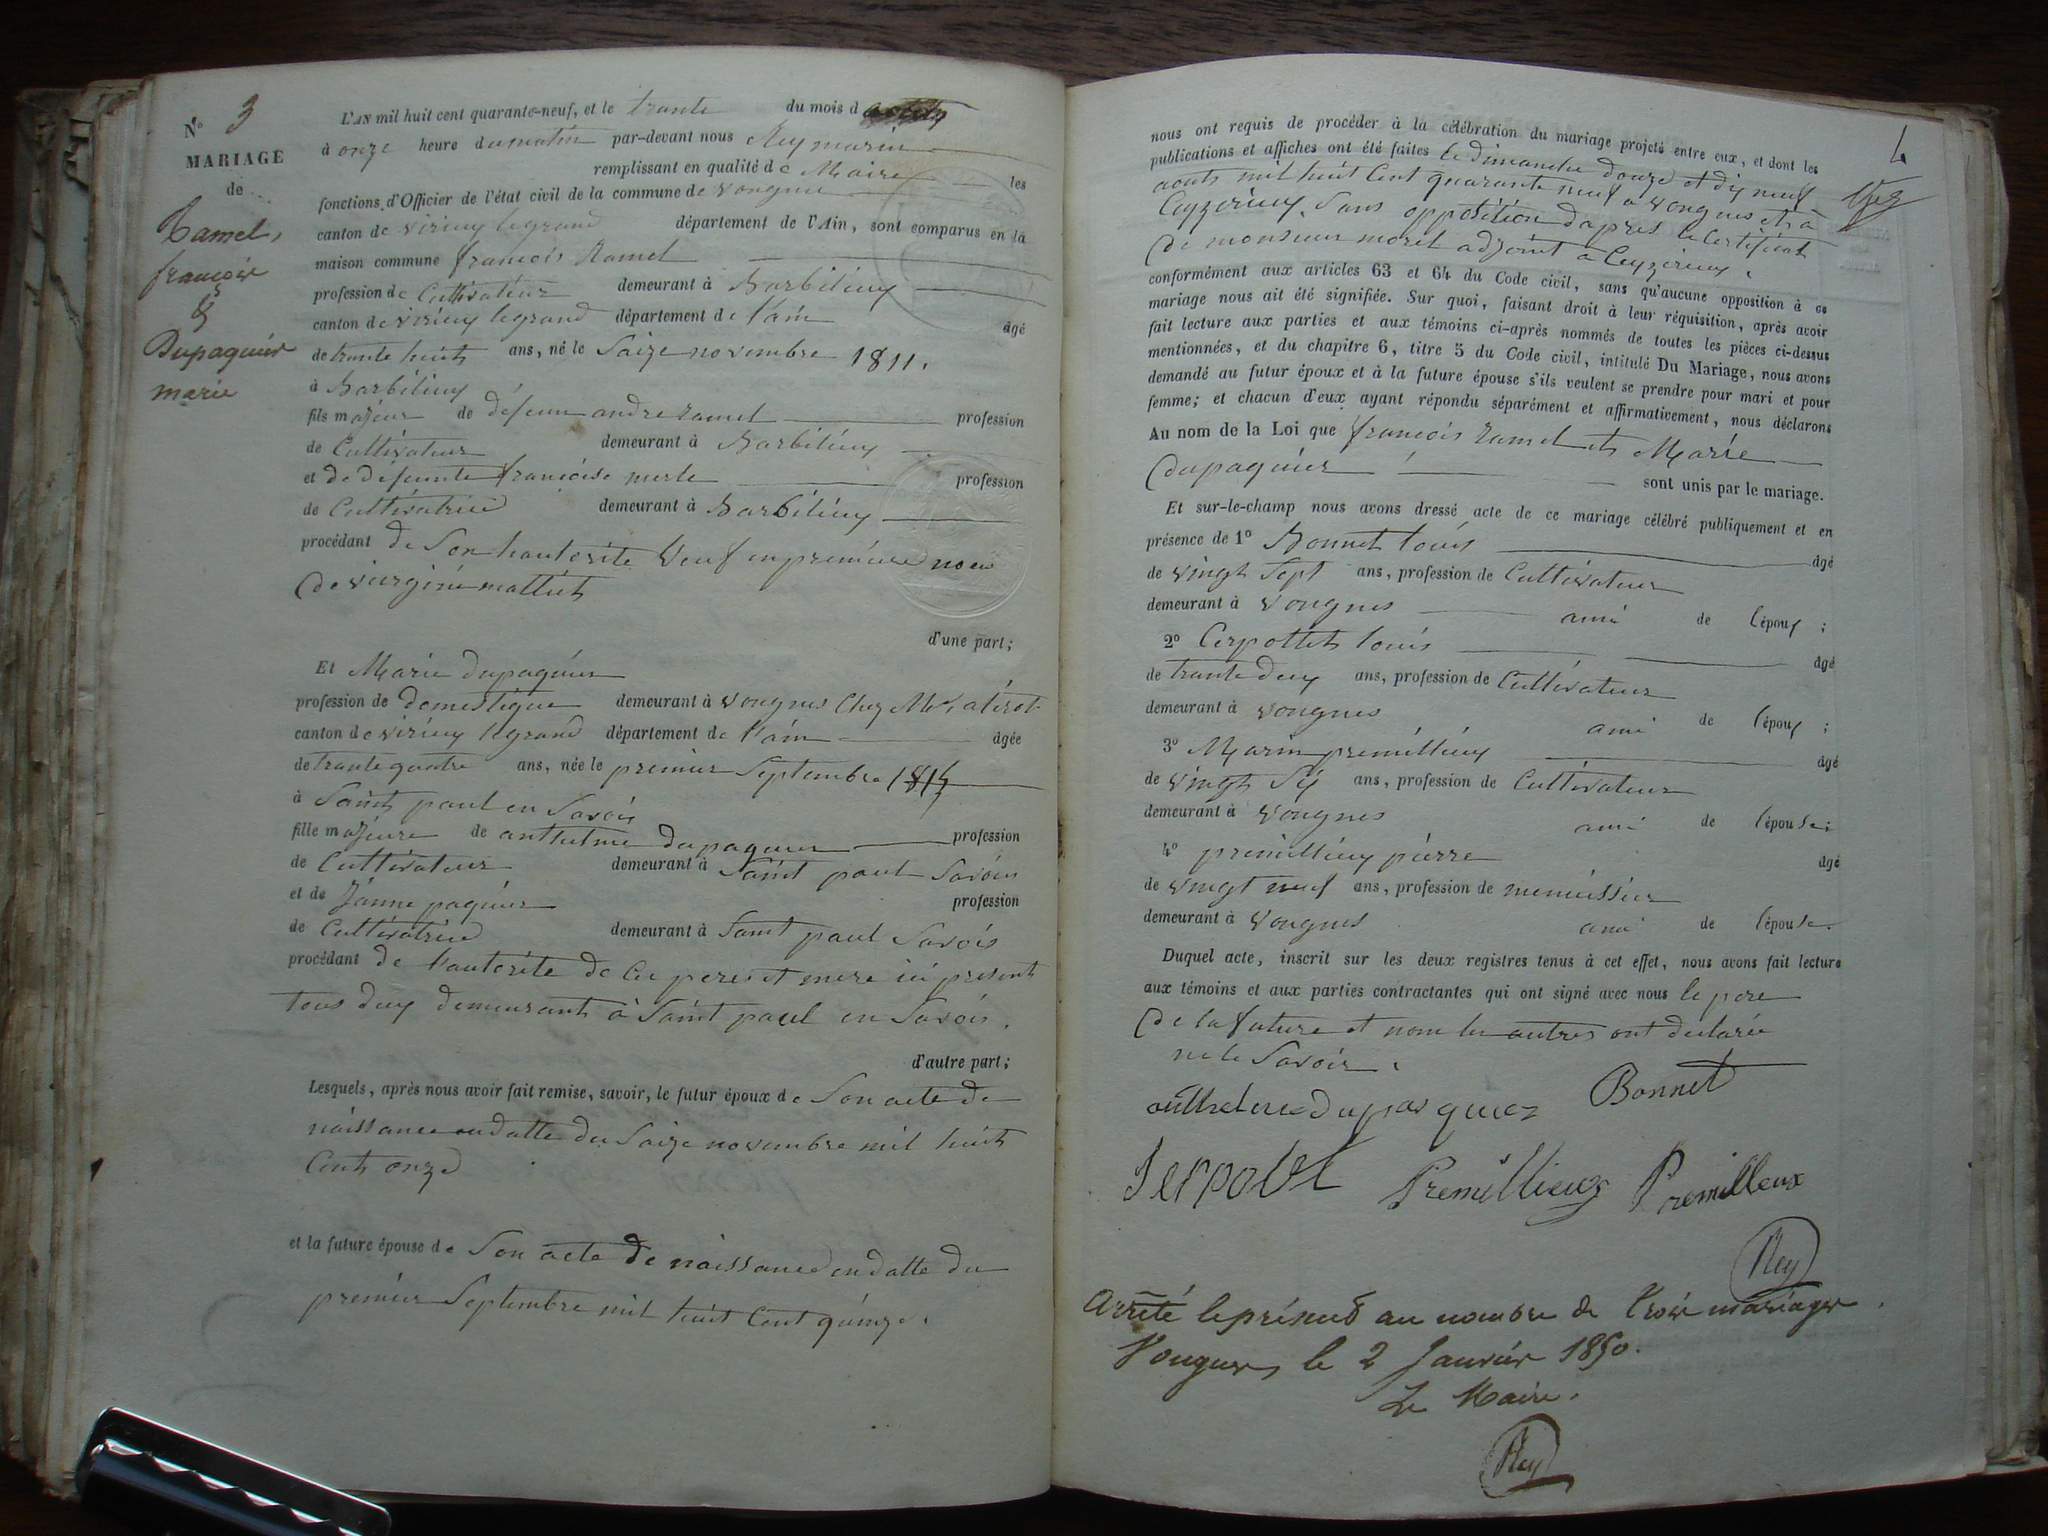 N° 3
MARIAGE
de
Ramel,
françois
&
Dupaquier
marie
L'AN mil huit cent quarante-neuf, et le trante du mois d
à onze heure du matin par-devant nous Rey marin
remplissant en qualité de Maire les
fonctions d'Officier de l'état civil de la commune de vongnes
canton de virieu legrand département de l'Ain, sont comparus en la
maison commune françois Ramel
profession de Cultivateur demeurant à Barbilieuy
canton de virieuy legrand département de l'ain âgé
de trante huit ans, né le Saize novembre 1811.
à Barbilieuy
fils majeur de défeun andre ramel profession
de Cultivateur demeurant à Barbilieuy
et de défeunte françoise merle profession
de Cultivatrice demeurant à Barbilieuy
procédant de Son hautorite Veuf en premiere noeu
de viergine mattiet
d'une part;
Et Marie dupaquier
profession de domestique demeurant à vongnes Chez Mr
canton de virieuy legrand département de l'ain âgée
de trante quatre ans, née le premier Septembre
à Saint paul en Savois
fille majeure de anthelme dupaquier profession
de Cultivateur demeurant à Saint paul Savois
et de Janne paquier profession
de Cultivatrice demeurant à Saint paul Savois
procédant de l'autorite de Ces peres et mere ici present
tous deuy demeurant à Saint paul en Savois.
d'autre part;
Lesquels, après nous avoir fait remise, savoir, le futur époux de Son acte de
naissance en datte du Saize novembre mil huit
Cent onze
et la future épouse de Son acte de naissance en datte du
premier Septembre mil huit Cent quinze.
4
nous ont requis de procéder à la célébration du mariage projeté entre eux, et dont les
publications et affiches ont été faites le dimanche douze et diy neuf
aouts mil huit Cent quarante neuf a vongnes et à
Ceyzerieuy, Sans opposition dapres le Certificat
de monsieur morel adjoint a Ceyzerieuy.
conformément aux articles 63 et 64 du Code civil, sans qu'aucune opposition à ce
mariage nous ait été signifiée. Sur quoi, faisant droit à leur réquisition, après avoir
fait lecture aux parties et aux témoins ci-après nommés de toutes les pièces ci-dessus
mentionnées, et du chapitre 6, titre 5 du Code civil, intitulé Du Mariage, nous avons
demandé au futur époux et à la future épouse s'ils veulent se prendre pour mari et pour
femme; et chacun d'eux ayant répondu séparément et affirmativement, nous déclarons
Au nom de la Loi que françois ramel et Marie
dupaquier sont unis par le mariage.
Et sur-le-champ nous avons dressé acte de ce mariage célébré publiquement et en
présence de 1° Bonnet louis âgé
de vingt Sept ans, profession de Cultivateur
demeurant à vongnes ami de l'épouy;
2° Cerpottet louis âgé
de trante deuy ans, profession de Cultivateur
demeurant à vongnes ami de l'épouy;
3° Marin premillieuy âgé
de vingt Siy ans, profession de Cultivateur
demeurant à vongnes ami de l'épouse;
4° premillieuy pierre âgé
de vingt neuf ans, profession de menuissier
demeurant à vongnes ami de l'épouse.
Duquel acte, inscrit sur les deux registres tenus à cet effet, nous avons fait lecture
aux témoins et aux parties contractantes qui ont signé avec nous le pere
de la future et nom les autres ont declarée
ne le Savoir.
anthelme dupasquier Bonnet
Serpolet Premillieux Premilleux
Rey
Arrêté le présent au nombre de trois mariages.
Vongnes, le 2 Janvier 1850.
Le Maire.
Rey